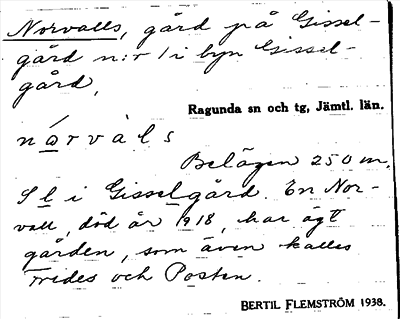 Norvalls, gård på Gissel-
gård n:r 1 i byn Gissel-
gård,
Ragunda sn och tg, Jämtl. län.
nárvàls
Belägen 250 m.
S l i Gisselgård. En Nor-
vall, död år 1918, har ägt
gården, som även kallas
Frides och Posten.
BERTIL FLEMSTRÖM 1938.